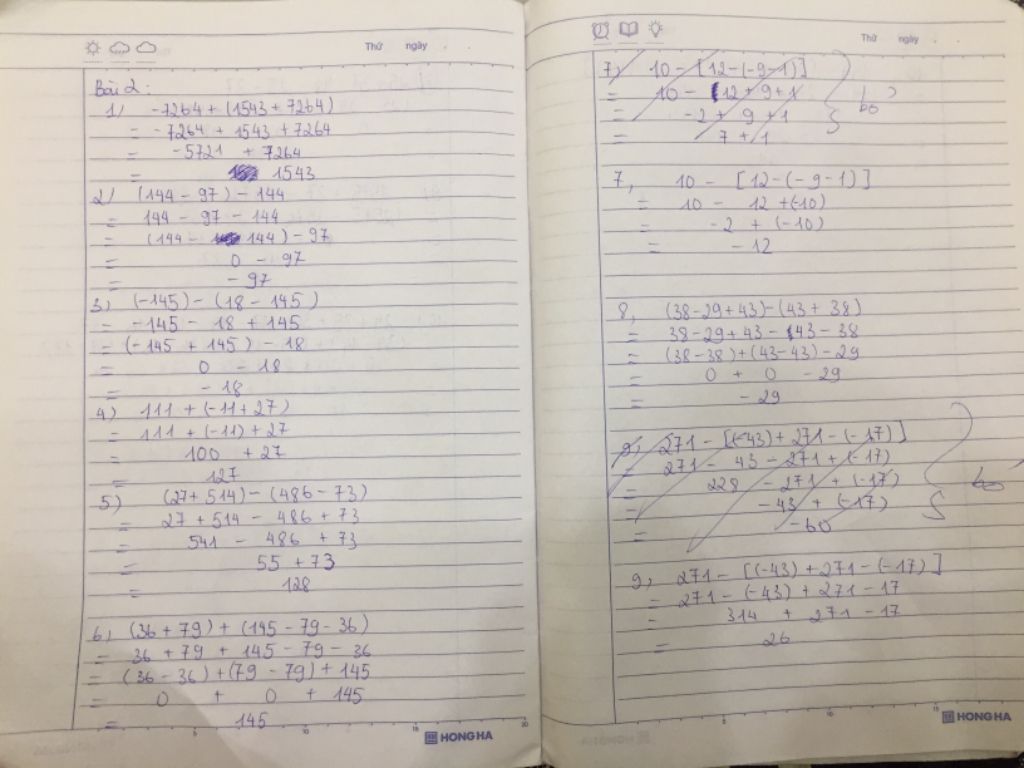 Thứ ngày
Bài 2:
1) -7264 + (1543 + 7264)
= -7264 + 1543 + 7264
= -5721 + 7264
= 1543
2) (144 - 97) - 144
= 144 - 97 - 144
= (144 - 144) - 97
= 0 - 97
= - 97
3) (-145) - (18 - 145)
= -145 - 18 + 145
= (-145 + 145) - 18
= 0 - 18
= - 18
4) 111 + (-11 + 27)
= 111 + (-11) + 27
= 100 + 27
= 127
5) (27 + 514) - (486 - 73)
= 27 + 514 - 486 + 73
= 541 - 486 + 73
= 55 + 73
= 128
6) (36 + 79) + (145 - 79 - 36)
= 36 + 79 + 145 - 79 - 36
= (36 - 36) + (79 - 79) + 145
= 0 + 0 + 145
= 145
HONG HA
Thứ ngày
7) 10 - [12 - (-9 - 1)]
= 10 - 12 + 9 + 1
= -2 + 9 + 1
= 7 + 1
bỏ
7, 10 - [12 - (-9 - 1)]
= 10 - 12 + (-10)
= -2 + (-10)
= - 12
8, (38 - 29 + 43) - (43 + 38)
= 38 - 29 + 43 - 43 - 38
= (38 - 38) + (43 - 43) - 29
= 0 + 0 - 29
= - 29
9, 271 - [(-43) + 271 - (-17)]
= 271 - 43 - 271 + (-17)
= 228 - 271 + (-17)
= - 43 + (-17)
= - 60
bỏ
9, 271 - [(-43) + 271 - (-17)]
= 271 - (-43) + 271 - 17
= 314 + 271 - 17
= 26
HONG HA